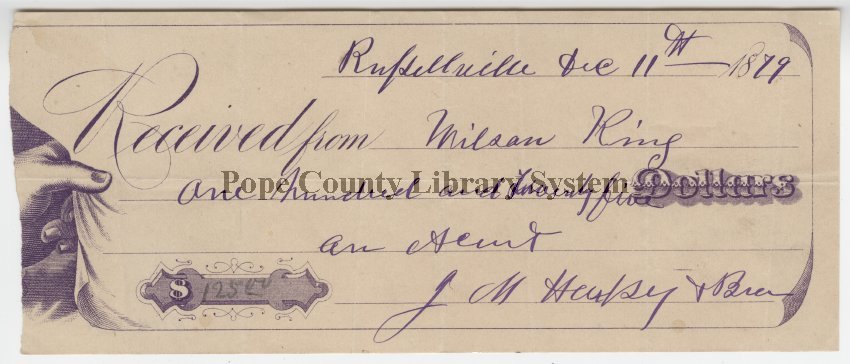 Russellville Dec 11th 1879
Received from Wilson King
Pope County Library System
One hundred and twenty five Dollars
on Acount
$ 125.00
J M Harkey & Bro